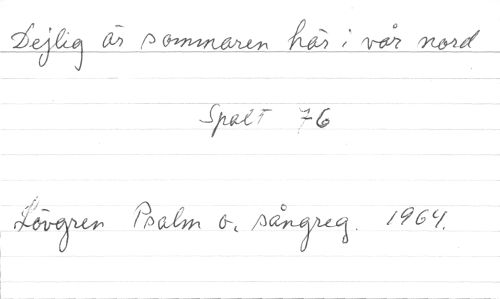 Dejlig är sommaren här i vår nord
Spalt 76
Lövgren Psalm o. sångreg. 1964.